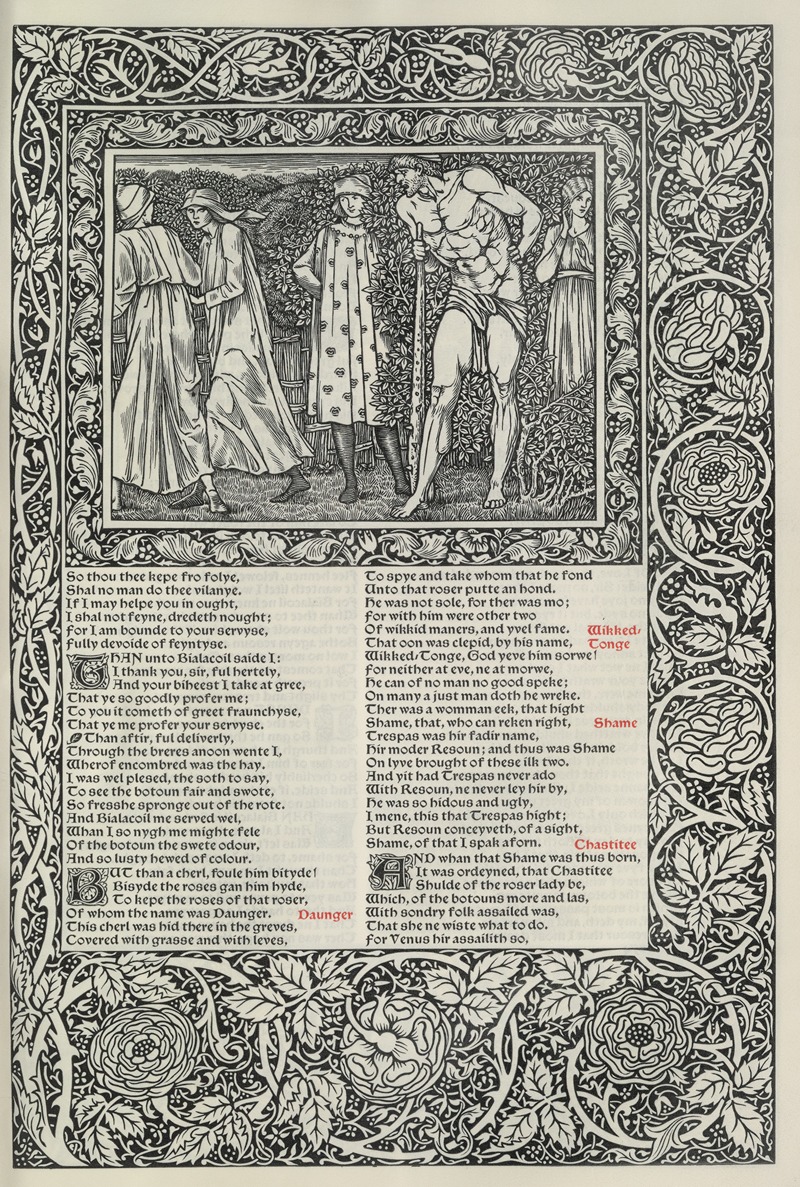 So thou thee kepe fro folye,
Shal no man do thee vilanye.
If I may helpe you in ought,
I shal not feyne, dredeth nought;
For I am bounde to your servyse,
Fully devoide of feyntyse.
THAN unto Bialacoil saide I:
I thank you, sir, ful hertely,
And your biheest I take at gree,
That ye so goodly profer me;
To you it cometh of greet fraunchyse,
That ye me profer your servyse.
Than aftir, ful deliverly,
Through the breres anoon wente I,
Wherof encombred was the hay.
I was wel plesed, the soth to say,
To see the botoun fair and swote,
So fresshe spronge out of the rote.
And Bialacoil me served wel,
Whan I so nygh me mighte fele
Of the botoun the swete odour,
And so lusty hewed of colour.
BUT than a cherl, foule him bityde!
Bisyde the roses gan him hyde,
To kepe the roses of that roser,
Of whom the name was Daunger.
Daunger
This cherl was hid there in the greves,
Covered with grasse and with leves,
To spye and take whom that he fond
Unto that roser putte an hond.
He was not sole, for ther was mo;
For with him were other two
Of wikkid maners, and yvel fame.
Wikked/
That oon was clepid, by his name,
Tonge
Wikked/Tonge, God yeve him sorwe!
For neither at eve, ne at morwe,
He can of no man no good speke;
On many a just man doth he wreke.
Ther was a womman eek, that hight
Shame, that, who can reken right,
Shame
Trespas was hir fadir name,
Hir moder Resoun; and thus was Shame
On lyve brought of these ilk two.
And yit had Trespas never ado
With Resoun, ne never ley hir by,
He was so hidous and ugly,
I mene, this that Trespas hight;
But Resoun conceyveth, of a sight,
Shame, of that I spak aforn.
Chastitee
AND whan that Shame was thus born,
It was ordeyned, that Chastitee
Shulde of the roser lady be,
Which, of the botouns more and las,
With sondry folk assailed was,
That she ne wiste what to do.
For Venus hir assailith so,